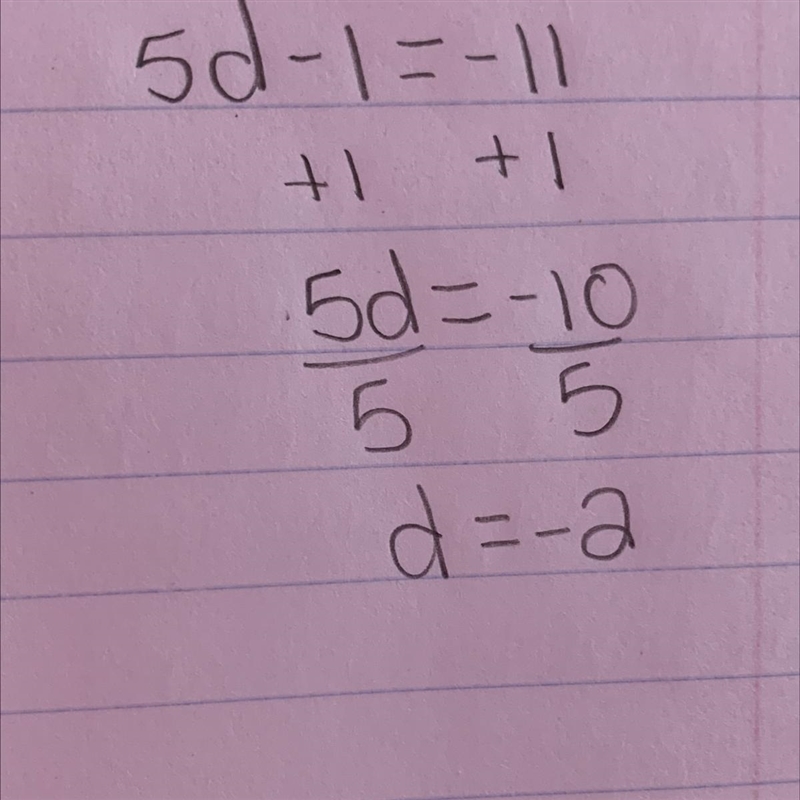 5d - 1 = -11
+1 +1
5d = -10
5 5
d = -2